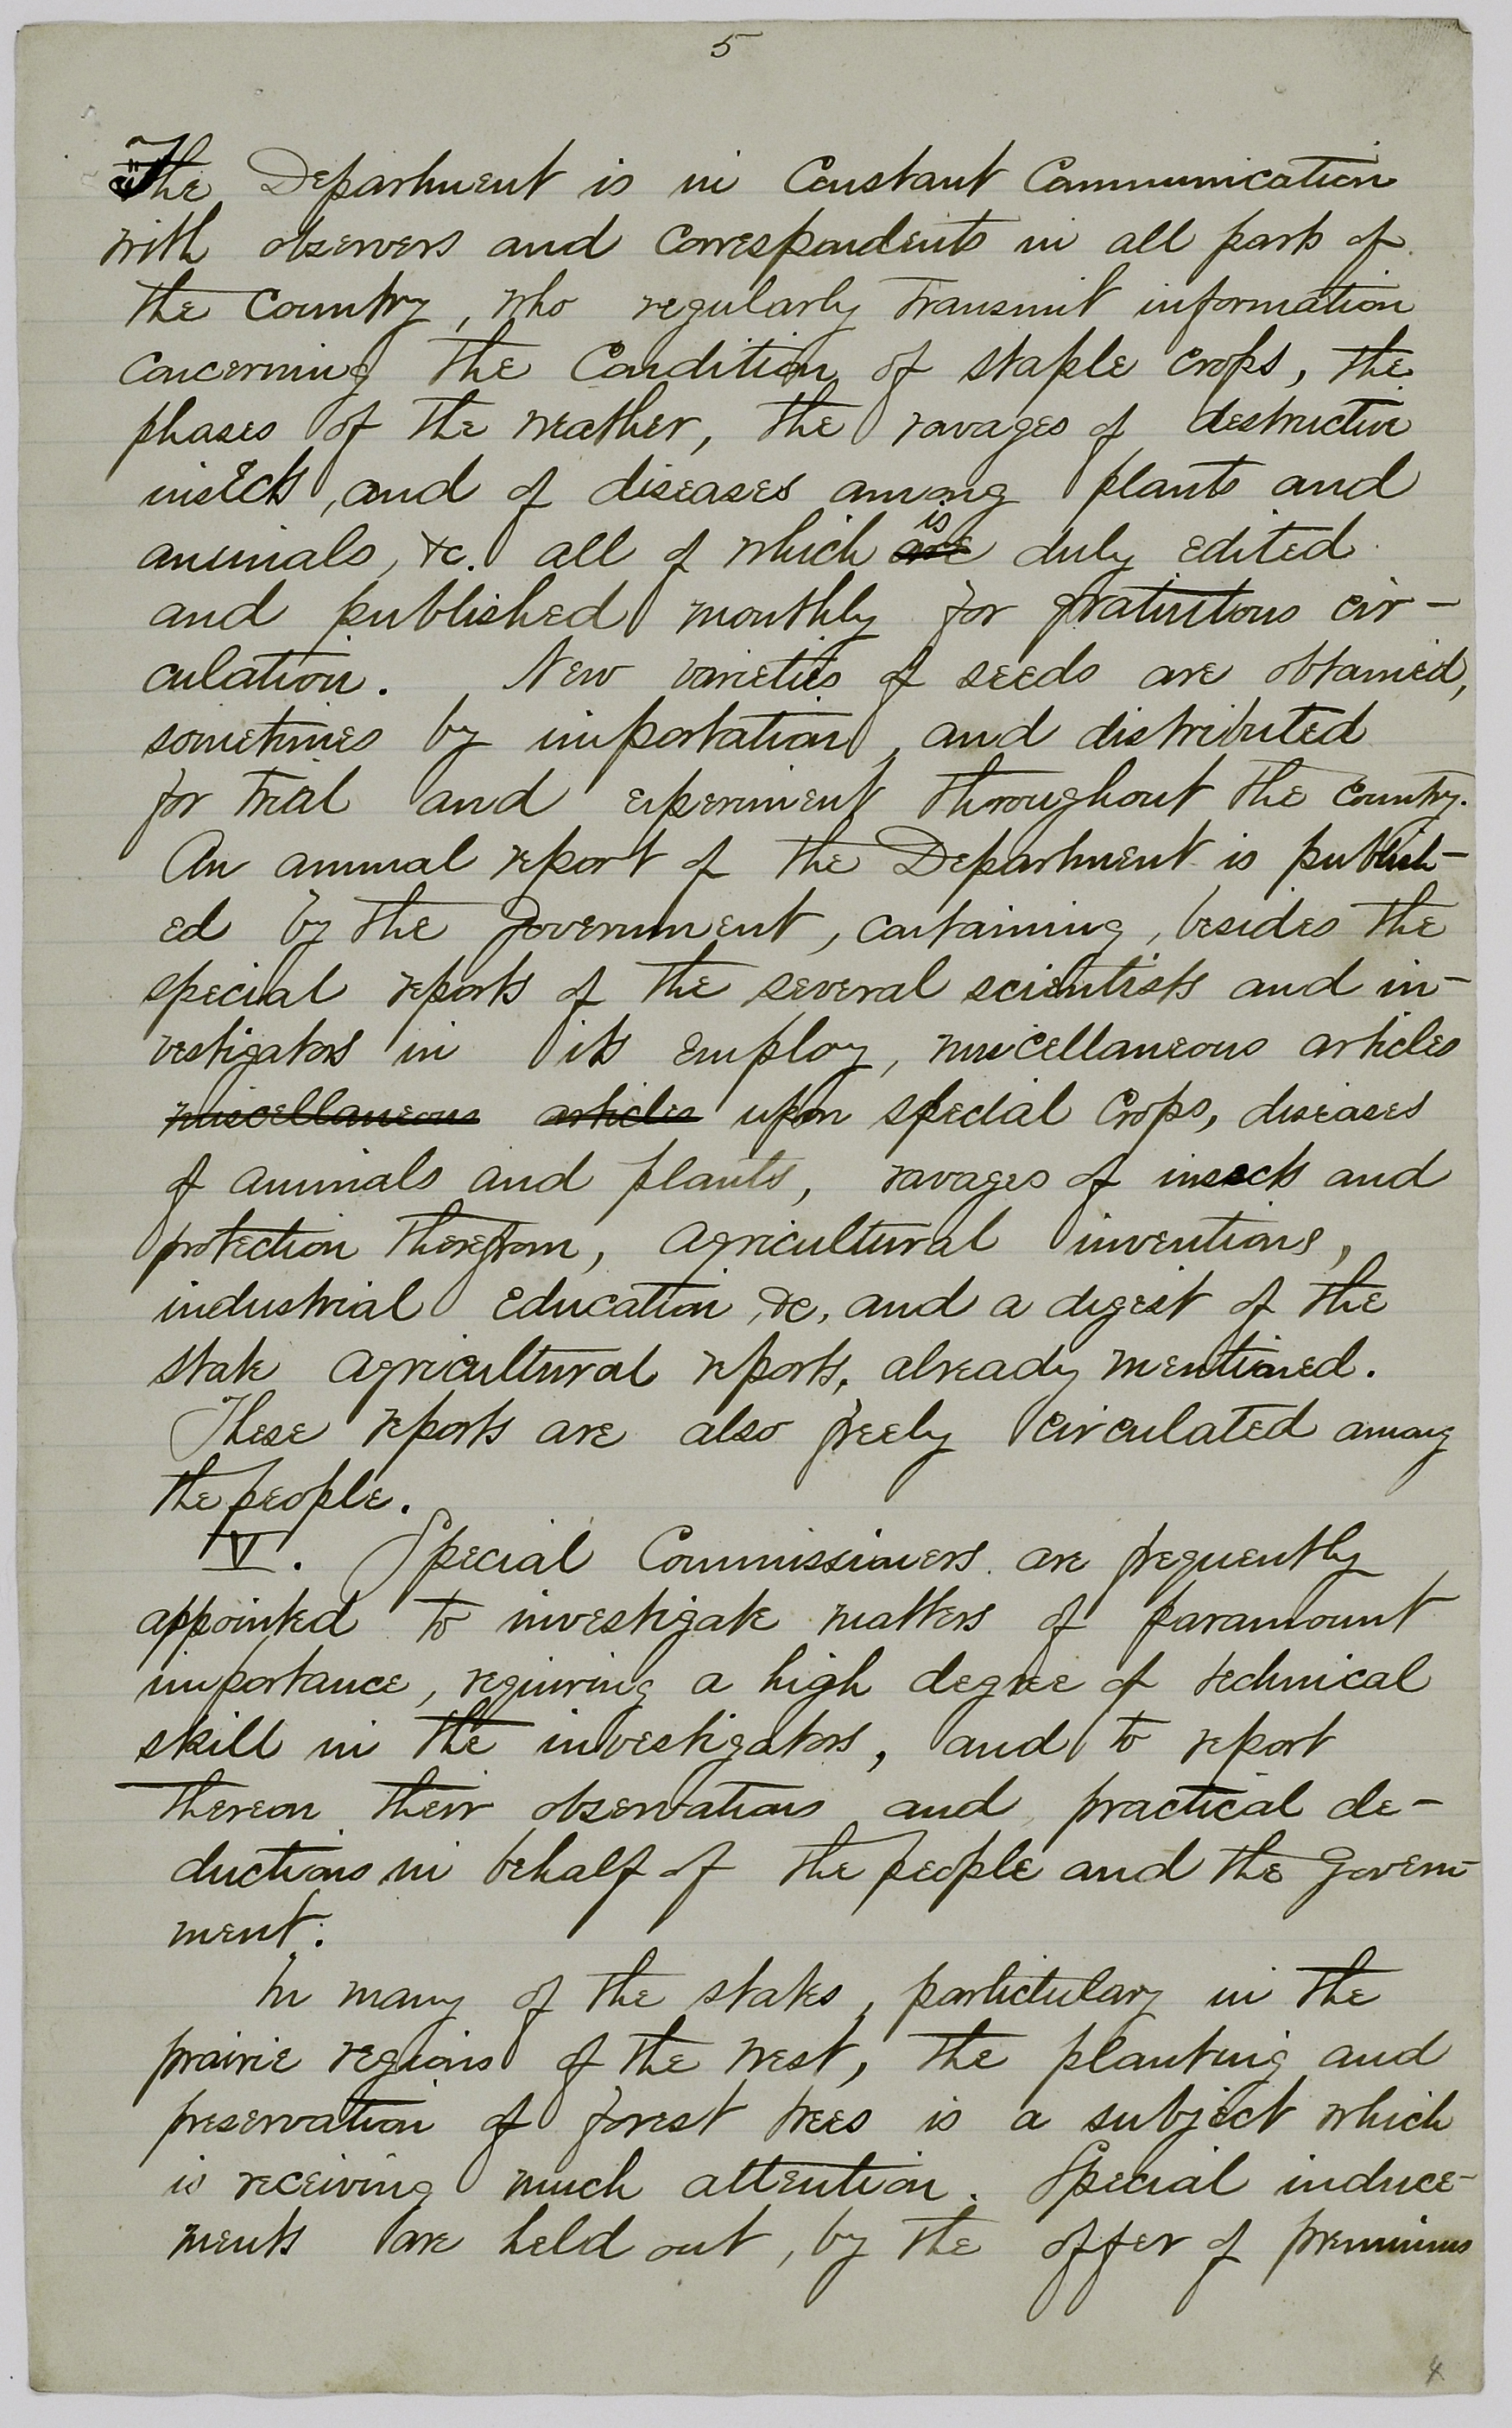 5
The Department is in Constant Communication
with observers and correspondents in all parts of
the Country, who regularly transmit information
concerning the Condition of staple crops, the
phases of the weather, the ravages of destructive
insects, and of diseases among plants and
animals, &c. all of which is are duly edited
and published monthly for gratiutous cir-
culation. New varieties of seeds are obtained,
sometimes by importation, and distributed
for trial and experiment throughout the country.
An annual report of the Department is publish-
ed by the Government, containing, besides the
special reports of the several scientists and in-
vestigators in its employ, miscellaneous articles
miscellaneous articles upon special crops, diseases
of animals and plants, ravages of insects and
protection therefrom, agricultural inventions,
industrial education, &c, and a digest of the
state agricultural reports, already mentioned.
These reports are also freely circulated among
the people.
V. Special Commissioners are frequently
appointed to investigate matters of paramount
importance, requiring a high degree of technical
skill in the investigators, and to report
thereon their observations and practical de-
ductions in behalf of the people and the govern-
ment.
In many of the states, particulary in the
prairie regions of the west, the planting and
preservation of forest trees is a subject which
is receiving much attention. Special induce-
ments are held out, by the offer of premiums
4